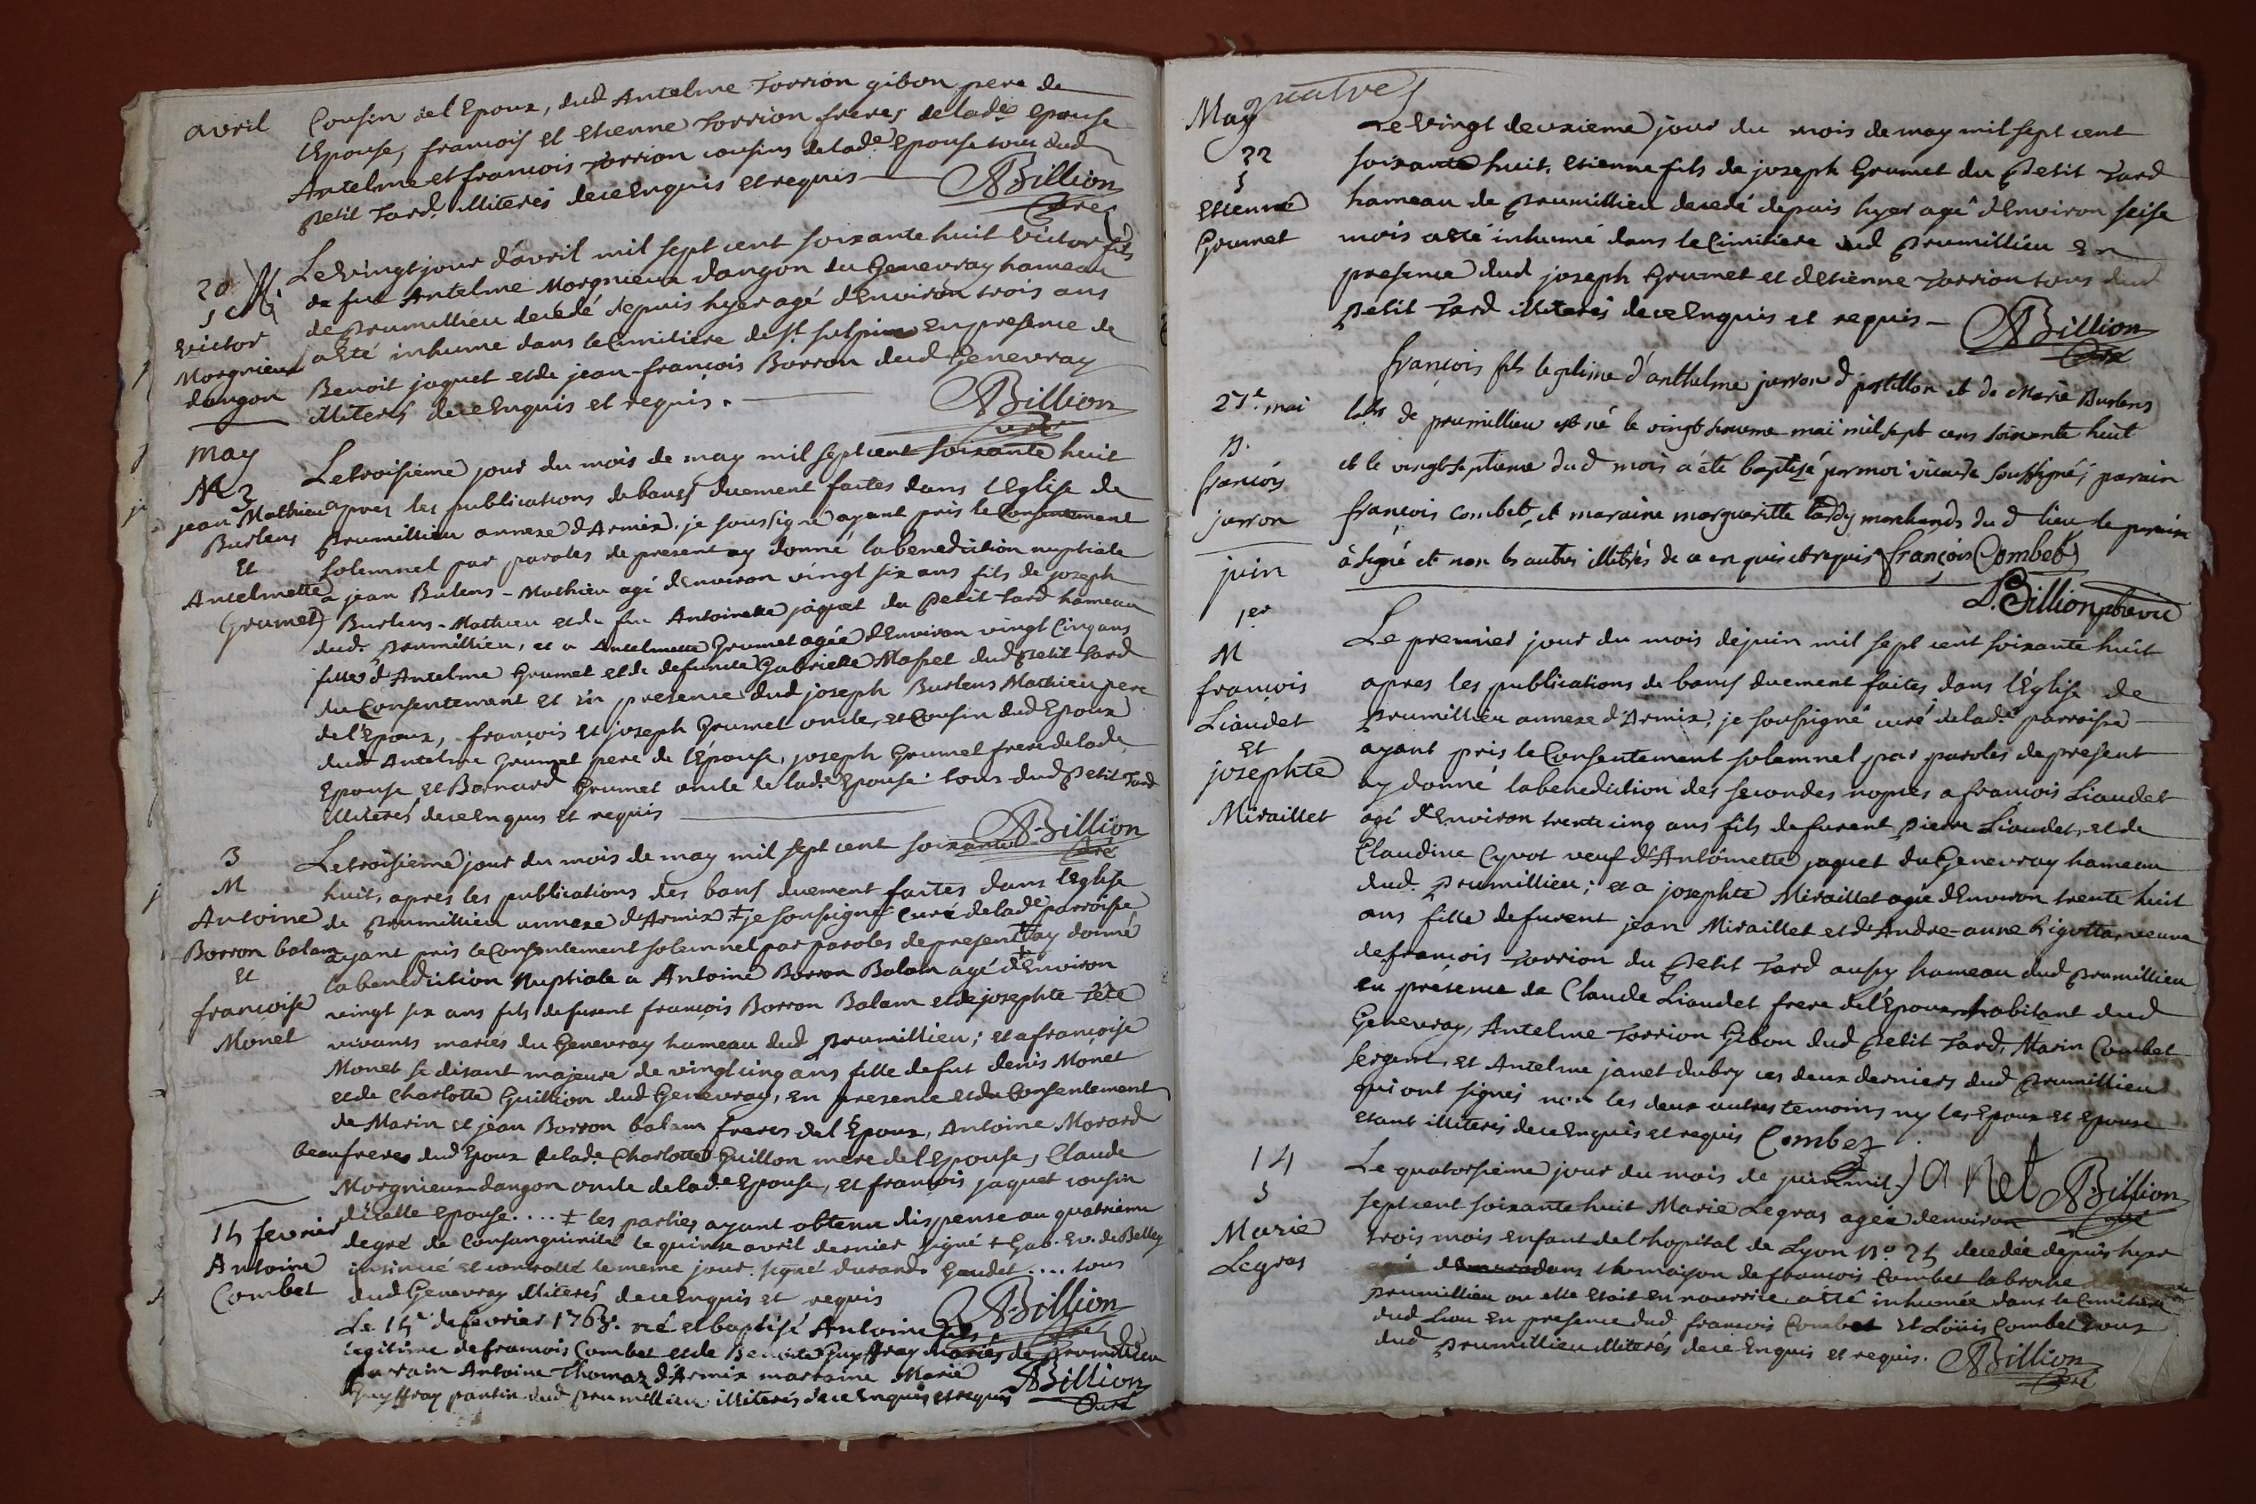 avril
Cousin del Epoux, dud Antelme Torrion gibon pere de
lEpouse, francois et Etienne Torrion freres delad.e epouse
Antelme et francois Torrion cousins delad.e Epouse tous dud
petit Tard illiterés dece Enquis et requis
ABillion
Curé
20
S
victor
Morgnieux
dangon
Le vingt jour d'avril mil sept cent soixante huit victor fils
de feu Antelme Morgnieux dangon du Genevray hameau
de prumillieu decedé depuis hyer agé d'Environ trois ans
a Eté inhumé dans le Cimitière de St sulpice En presence de
Benoit jaquet et de jean-francois Borron dud Genevray
illiterés dece Enquis et requis.
ABillion
curé
may
M 3
jean Mathieu
Burlens
Et
Antelmette
Grumet
Le troisieme jour du mois de may mil sept cent soixante huit
apres les publications de bans duement faites dans l'Eglise de
prumillieu annexe d'Armix. je soussigné ayant pris le Consentement
solemnel par paroles de present ay donné la benediction nuptiale
a jean Bulens-Mathieu agé d'environ vingt six ans fils de joseph
Burlens-Mathieu et de feu Antoinette jaquet du petit-tard hameau
dud. prumillieu, et a Antelmette Grumet agée d'Environ vingt Cinq ans
fille d'Antelme Grumet et de defunte Gabrielle Masset dud petit-tard
du Consentement et in presence dud joseph Burlens Mathieu pere
de l'Epoux, francois et joseph Grumet oncle, et Cousin dud Epoux
dud Antelme Grumet pere de l'Epouse, joseph Grumet frere delad.e
Epouse et Bernard Grumet oncle de lad.e Epouse tous dud petit Tard
illiterés dece Enquis et requis
ABillion
Curé
3
M
Antoine
Borron balam
Et
francoise
Monet
Le troisieme jour du mois de may mil sept cent soixante
huit, apres les publications des bans duement faites dans l'Eglise
de prumillieu annexe d'Armix ‡ je soussigné Curé delad.e parroisse
ayant pris le Consentement solemnel par paroles de present ay donné
la benediction Nuptiale a Antoine Borron Balam agé d'Environ
vingt six ans fils defurent francois Borron Balam et de josephte Tête
vivants mariés du Genevray hameau dud prumillieu; et a francoise
Monet se disant majeure de vingt cinq ans fille defut denis Monet
et de Charlotte Guillion dud Genevray, en presence et du Consentement
de Marin et jean Borron balam freres del Epoux, Antoine Morard
beaufreres dud Epoux delad.e Charlotte Guillon mere del Epouse, Claude
Morgnieux dangon oncle delad.e Epouse, et francois jaquet cousin
dicelle epouse.... ‡ les parties ayant obtenu dispense au quatrieme
degré de Consanguinité le quinze avril dernier signé † Gab. Ev. de Belley
insinué et controllé le meme jour. signé durand. Gaudet.... tous
dud Genevray illiterés dece Enquis et requis
ABillion
Curé
15 fevrier
Antoine
Combet
Le 15e de fevrier 1768. né et baptisé Antoine fils
legitime de francois Combet et de Benoite Guyffray mariés de prumillieu
parrain Antoine Thomaz d'Armix marraine Marie
Guyffray pantin dud prumillieu illiterés dece Enquis et requis
ABillion
Curé
quatre
May
22
S
Etienne
Grumet
Le Vingt deuxieme jour du mois de may mil sept cent
soixante huit. Etienne fils de joseph Grumet du petit Tard
hameau de prumillieu decedé depuis hyer agé d'Environ seise
mois a eté inhumé dans le Cimitiere dud prumillieu En
presence dud joseph Grumet et d'Etienne Torrion tous dud
petit Tard illiterés dece Enquis et requis
ABillion
Curé
27e mai
B.
françois
jarron
françois fils legitime d'anthelme jarron d postillon et de Marie Burlens
labr de prumillieu est né le vingt mai mil sept cens soixante huit
et le vingt septieme dud mois a été baptisé par moi vicaire soussigné; parain
françois combet, et maraine margueritte tardy marchands dud lieu le parain
à signé et non les autres illitérés de ce enquis et requis françois Combet
D. Billion pbre vic
juin
1er
M
francois
Liaudet
Et
josephte
Miraillet
Le premier jour du mois dejuin mil sept cent soixante huit
apres les publications de bans duement faites dans l'Eglise de
prumillieu annexe d'Armix, je soussigné curé delad.e parroisse
ayant pris le Consentement solemnel par paroles de present
ay donné la benediction des secondes nopces a francois Liaudet
agé d'Environ trente cinq ans fils defurent pierre Liaudet, et de
Claudine Cyvot veuf d'Antoinette jaquet du Genevray hameau
dud. prumillieu; et a josephte Miraillet agée d'Environ trente huit
ans fille defurent jean Miraillet et d'Andre-anne Rigottar veuve
defrancois Torrion du petit Tard aussy hameau dud prumillieu
en présence de Claude Liaudet frere del'Epoux habitant dud
Genevray, Antelme Torrion Gibon dud petit Tard, Marin Combet
sergent, et Antelme janet dubry ces deux derniers dud prumillieu
qui ont signés non les deux autres temoins ny les Epoux et epouse
etant illiterés dece Enquis et requis Combet
janet ABillion
Curé
14
S
Marie
Legras
Le quatorsieme jour du mois de juin mil
sept cent soixante huit Marie Legras agée d'environ
trois mois enfant del'hopital de Lyon No. 25 decedée depuis hyer
dans la maison de francois Combet labroche
prumillieu ou elle etait en nourrice a été inhumée dans le Cimitiere
dud Lieu En presence dud francois Combet et Loüis Combet tous
dud prumillieu illiterés dece Enquis et requis.
ABillion
Curé